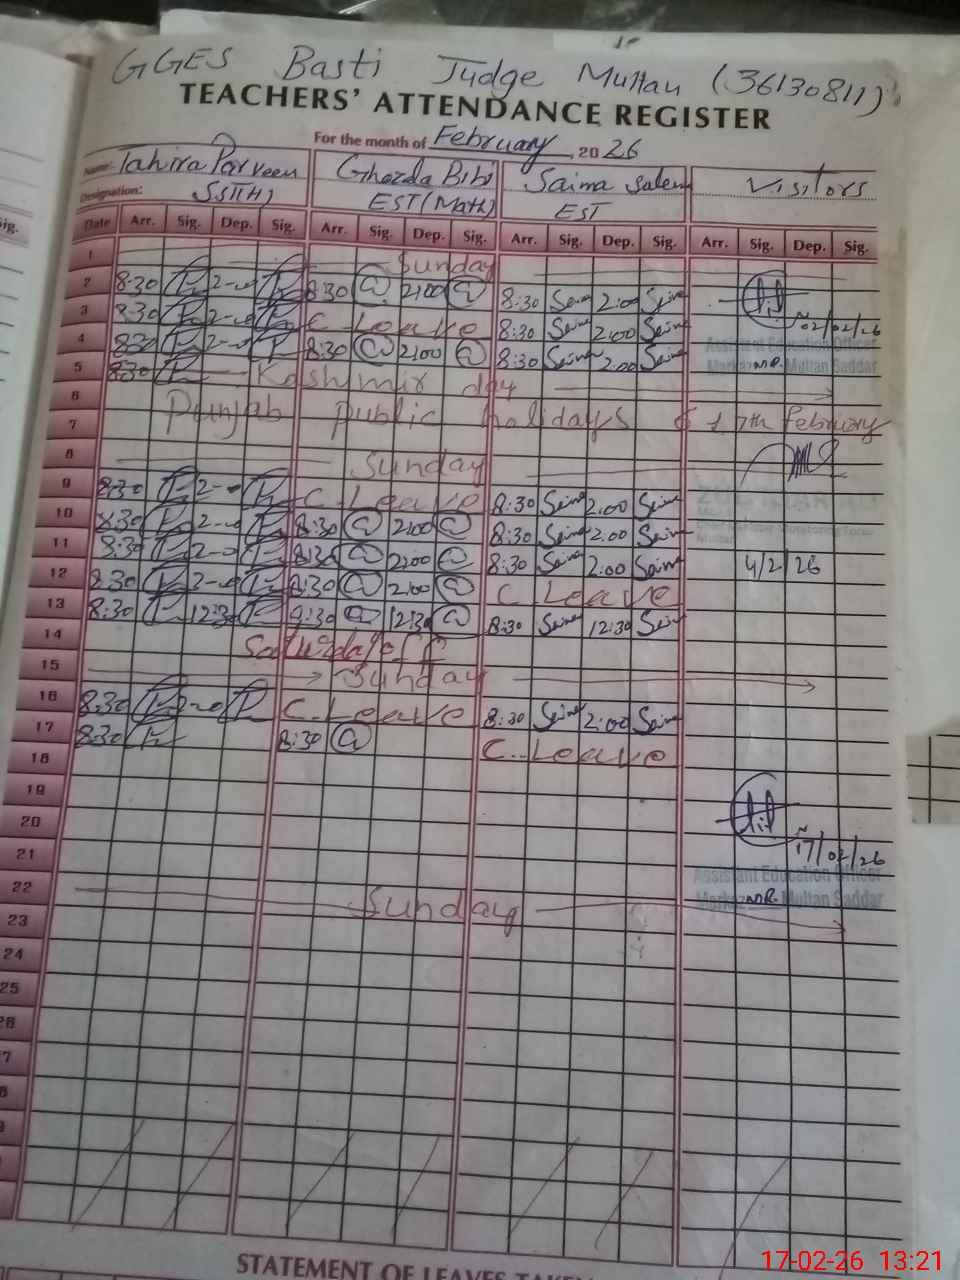 GGES Basti Judge Multan (36130811)
TEACHERS' ATTENDANCE REGISTER
For the month of February, 2026
Name: Tahira Parveen Ghazda Bibi Saima Saleem Visitors
Designation: SST(H) EST(Math) EST
Date Arr. Sig. Dep. Sig. Arr. Sig. Dep. Sig. Arr. Sig. Dep. Sig. Arr. Sig. Dep. Sig.
1 Sunday
2 8:30 2-00 8:30 2:00 8:30 Saima 2:00 Saima
02/02/26
3 8:30 2-00 C Leave 8:30 Saima 2:00 Saima
Assistant Education Officer
4 8:30 2-00 8:30 2:00 8:30 Saima 2:00 Saima
Markaz MR. Multan Saddar
5 8:30 Kashmir day
6 Punjab public holidays 6 & 7th February
7
8 Sunday
9 8:30 2-00 C. Leave 8:30 Saima 2:00 Saima
10 8:30 2-00 8:30 2:00 8:30 Saima 2:00 Saima
11 8:30 2-00 8:30 2:00 8:30 Saima 2:00 Saima 4/2/26
12 8:30 2-00 8:30 2:00 C Leave
13 8:30 12:30 8:30 12:30 8:30 Saima 12:30 Saima
14 Saturday off
15 Sunday
16 8:30 2-00 C. Leave 8:30 Saima 2:00 Saima
17 8:30 8:30 C. Leave
18
19
20
17/02/26
21
Assistant Education Officer
22 Sunday
Markaz MR. Multan Saddar
23
24
25
26
7
8
9
STATEMENT OF LEAVES TAKEN
17-02-26 13:21